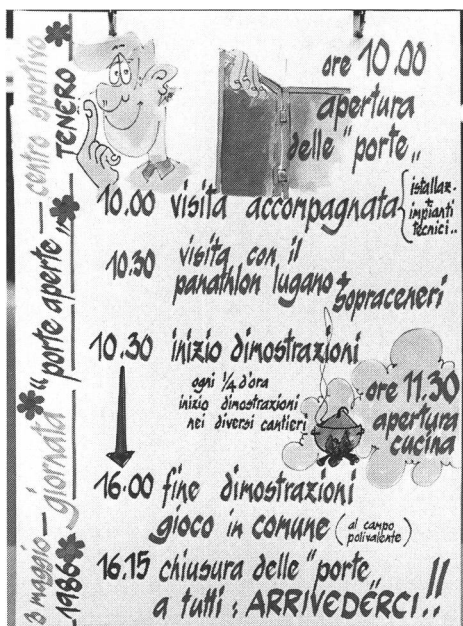 3 maggio 1986 giornata "porte aperte" centro sportivo TENERO
ore 10.00
apertura
delle "porte"
10.00 visita accompagnata
istallaz.
+
impianti
tecnici..
10.30 visita con il
panathlon lugano +
sopraceneri
10.30 inizio dimostrazioni
ogni 1/4 d'ora
inizio dimostrazioni
nei diversi cantieri
ore 11.30
apertura
cucina
16.00 fine dimostrazioni
gioco in comune (al campo
polivalente)
16.15 chiusura delle "porte"
a tutti: ARRIVEDERCI..!!